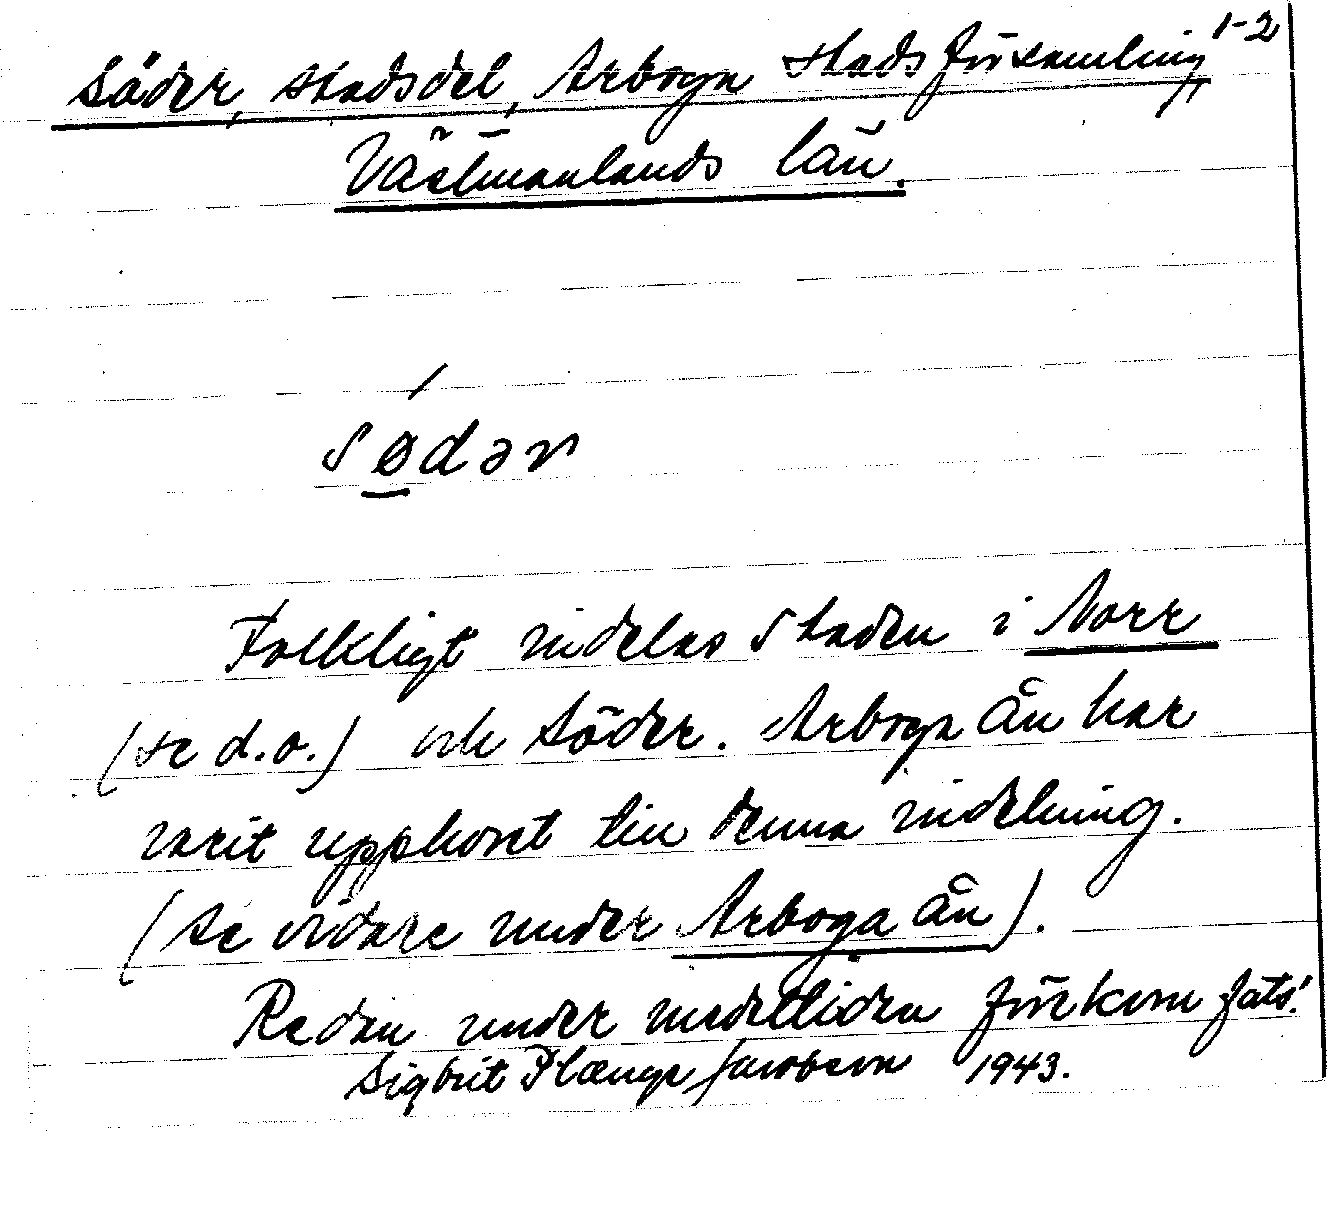 1-2
Söder, stadsdel, Arboga stadsförsamling
Västmanlands län.
södər
Folkligt indelas staden i Norr
(se d.o.) och Söder. Arbogaån har
varit upphovet till denna indelning.
(Se vidare under Arbogaån).
Redan under medeltiden förekom fats!
Sigbrit Plænge Jacobson 1943.